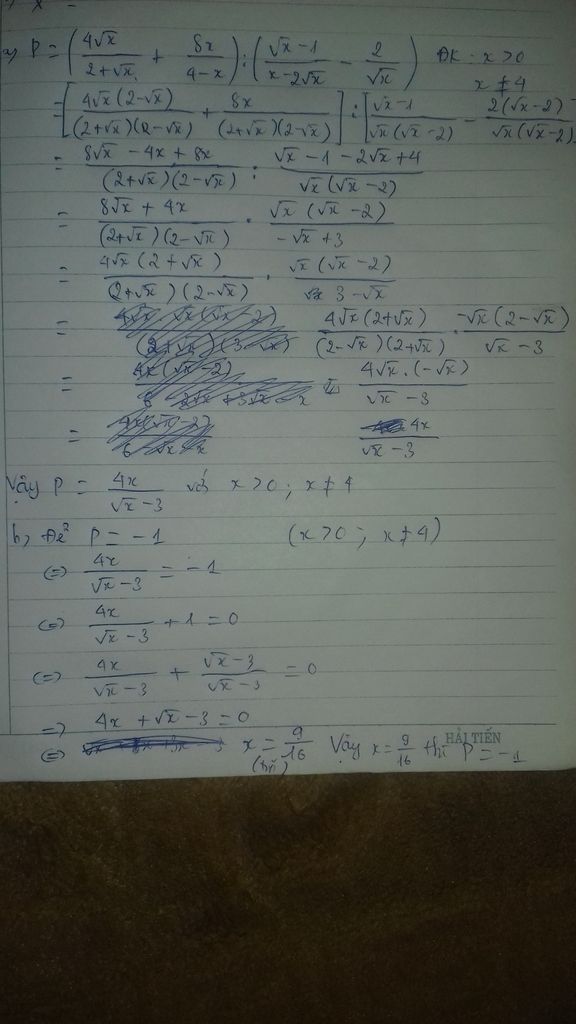 a) P = (4√x/(2+√x) + 8x/(4-x)) : ((√x-1)/(x-2√x) - 2/√x) ĐK: x>0
x ≠ 4
= [4√x(2-√x)/((2+√x)(2-√x)) + 8x/((2+√x)(2-√x))] : [(√x-1)/(√x(√x-2)) - 2(√x-2)/(√x(√x-2))]
= (8√x - 4x + 8x)/((2+√x)(2-√x)) : (√x - 1 - 2√x + 4)/(√x(√x-2))
= (8√x + 4x)/((2+√x)(2-√x)) . √x(√x-2)/(-√x+3)
= 4√x(2+√x)/((2+√x)(2-√x)) . √x(√x-2)/(3-√x)
= 4√x(2+√x)/((2-√x)(2+√x)) . -√x(2-√x)/(√x-3)
= 4√x.(-√x)/(√x-3)
= 4x/(√x-3)
Vậy P = 4x/(√x-3) với x>0; x≠4
b, Để P = -1 (x>0; x≠4)
(=) 4x/(√x-3) = -1
(=) 4x/(√x-3) + 1 = 0
(=) 4x/(√x-3) + (√x-3)/(√x-3) = 0
=) 4x + √x - 3 = 0
(=) x = 9/16 Vậy x = 9/16 thì P = -1
HẢI TIẾN